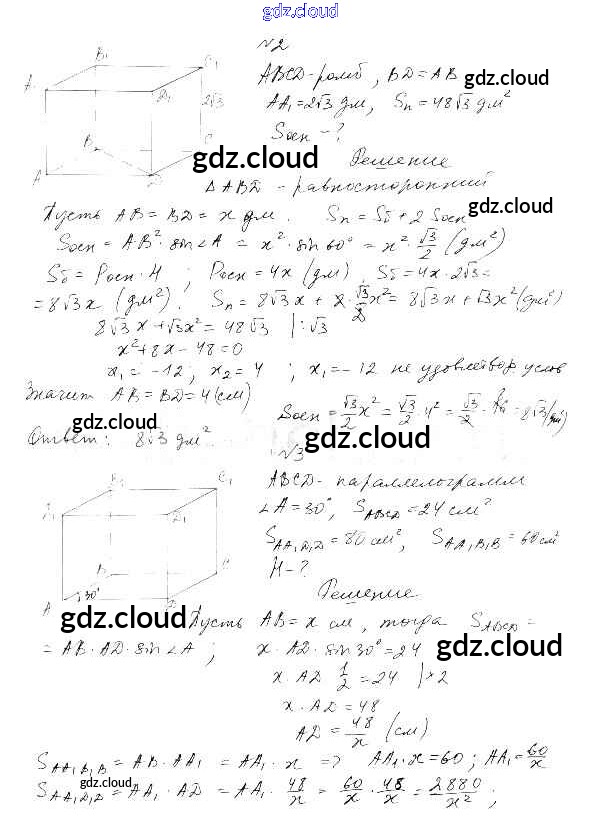 gdz.cloud
N2
ABCD - ромб, BD = AB
gdz.cloud
AA₁ = 2√3 дм, Sп = 48√3 дм²
Sосн - ?
B₁ C₁ A₁ D₁ 2√3 B C A D
gdz.cloud
Решение
△ABD - равносторонний
gdz.cloud
Пусть AB = BD = x дм. Sп = Sб + 2 Sосн
Sосн = AB² · sin∠A = x² · sin 60° = x² · √3/2 (дм²)
Sб = Pосн · H ; Pосн = 4x (дм) . Sб = 4x · 2√3 =
= 8√3x (дм²) . Sп = 8√3x + 2 · √3/2 x² = 8√3x + √3x² (дм²)
8√3x + √3x² = 48√3 | : √3
x² + 8x - 48 = 0
x₁ = -12 ; x₂ = 4 ; x₁ = -12 не удовлетвор. услов
Значит AB = BD = 4 (см)
Sосн = √3/2 x² = √3/2 · 4² = √3/2 · 16 = 8√3 (дм²)
Ответ: 8√3 дм²
N3
ABCD - параллелограмм
∠A = 30°, S ABCD = 24 см²
S AA₁D₁D = 80 см², S AA₁B₁B = 60 см²
H - ?
B₁ C₁ D₁ B A 30° D
Решение
gdz.cloud
Пусть AB = x см, тогда S ABCD =
gdz.cloud
= AB · AD · sin∠A ; x · AD · sin 30° = 24
x · AD 1/2 = 24 | × 2
x · AD = 48
AD = 48/x (см)
S AA₁B₁B = AB · AA₁ = AA₁ · x => AA₁ · x = 60 ; AA₁ = 60/x
gdz.cloud
S AA₁D₁D = AA₁ · AD = AA₁ · 48/x = 60/x · 48/x = 2880/x² ;
gdz.cloud